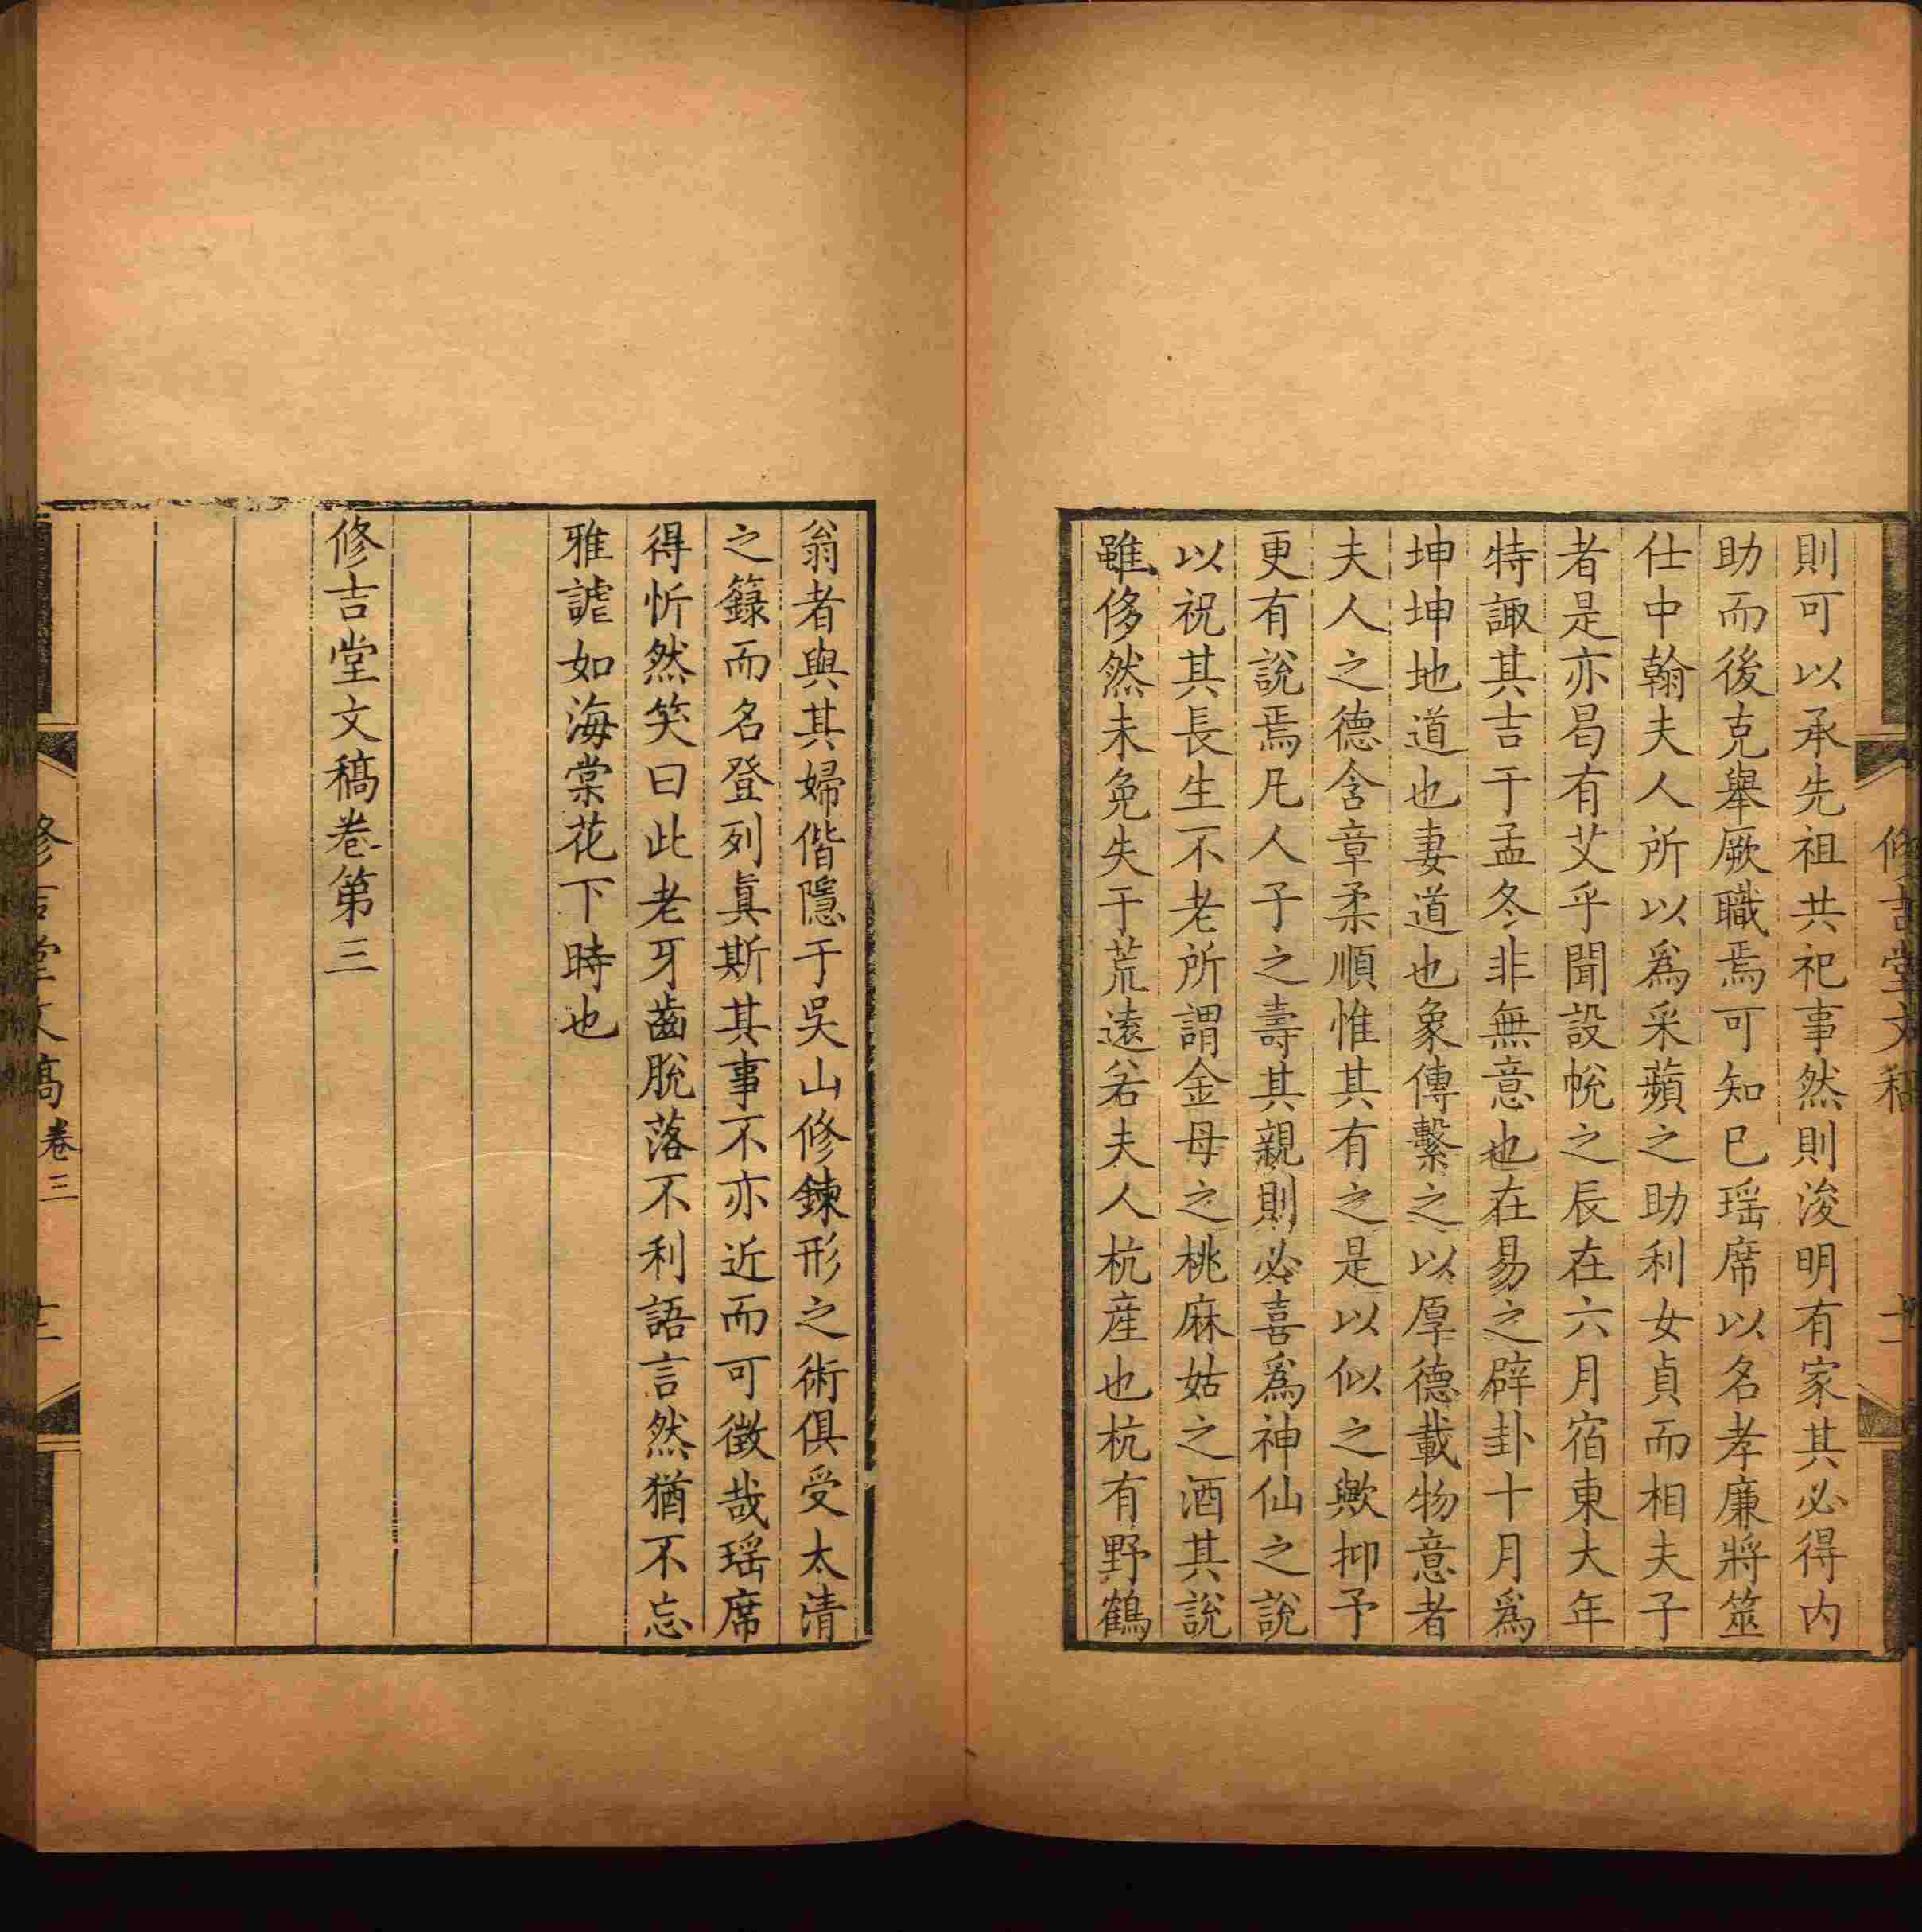 則可以承先祖共祀事然則浚明有家其必得内
助而後克舉厥職焉可知已瑶席以名孝廉將筮
仕中翰夫人所以爲采蘋之助利女貞而相夫子
者是亦曷有艾乎聞設帨之辰在六月宿東大年
特諏其吉于孟冬非無意也在易之辟卦十月爲
坤坤地道也妻道也象傳繫之以厚德載物意者
夫人之德含章柔順惟其有之是以似之歟抑予
更有說焉凡人子之壽其親則必喜爲神仙之說
以祝其長生不老所謂金母之桃麻姑之酒其說
雖侈然未免失于荒遠若夫人杭産也杭有野鶴
翁者與其婦偕隱于吳山修鍊形之術俱受太清
之籙而名登列眞斯其事不亦近而可徵哉瑶席
得忻然笑曰此老牙齒脫落不利語言然猶不忘
雅謔如海棠花下時也
修吉堂文稿卷第三
修吉堂文稿
修吉堂文稿 卷三